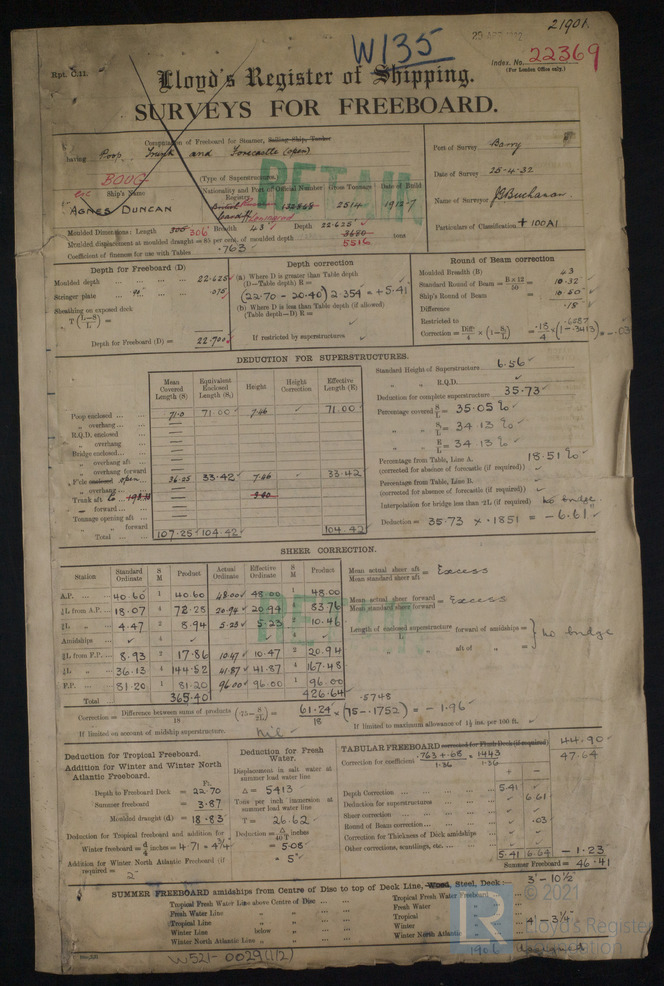 21901
W135
Index. No. 22369
(For London Office only.)
Rpt. C.11.
Lloyd's Register of Shipping.
SURVEYS FOR FREEBOARD.
Computation of Freeboard for Steamer, Sailing Ship, Tanker
having Poop, Trunk and Forecastle (open)
Port of Survey Barry
(Type of Superstructures.)
Date of Survey 25-4-32
Ship's Name
Nationality and Port of Registry
Official Number
Gross Tonnage
Date of Build
RETAIN
AGNES DUNCAN
British
Cardiff
132868
2514
1912-7
Name of Surveyor J G Buchanan
Moulded Dimensions: Length 305 306 Breadth 43 Depth 22.625
Moulded displacement at moulded draught = 85 per cent. of moulded depth 5516 tons
Coefficient of fineness for use with Tables .763
Particulars of Classification + 100A1
Depth for Freeboard (D)
Moulded depth 22.625
Stringer plate .075
Sheathing on exposed deck
T (L−S / L) =
Depth for Freeboard (D) = 22.700
Depth correction
(a) Where D is greater than Table depth
(D−Table depth) R =
(22.70 - 20.40) 2.354 = +5.41
(b) Where D is less than Table depth (if allowed)
(Table depth−D) R =
If restricted by superstructures
Round of Beam correction
Moulded Breadth (B) 43
Standard Round of Beam = B×12 / 50 = 10.32
Ship's Round of Beam = 10.50
Difference .18
Restricted to
Correction = Diff. / 4 × (1− S / L) = .18 / 4 × (1-.3413) = -.03
.6587
DEDUCTION FOR SUPERSTRUCTURES.
Mean Covered Length (S)
Equivalent Enclosed Length (S₁)
Height
Height Correction
Effective Length (E)
Poop enclosed 71.0 71.00 7.46 71.00
„ overhang
R.Q.D. enclosed
„ overhang
Bridge enclosed
„ overhang aft
„ overhang forward
F'cle open 36.25 33.42 7.46 33.42
„ overhang
Trunk aft
„ forward
Tonnage opening aft
„ „ forward
Total 107.25 104.42 104.42
Standard Height of Superstructure 6.56
„ „ R.Q.D.
Deduction for complete superstructure 35.73
Percentage covered S / L = 35.05 %
„ „ S₁ / L = 34.13 %
„ „ E / L = 34.13 %
Percentage from Table, Line A. 18.51 %
(corrected for absence of forecastle (if required))
Percentage from Table, Line B.
(corrected for absence of forecastle (if required))
Interpolation for bridge less than ·2L (if required) No bridge
Deduction = 35.73 × .1851 = -6.61
SHEER CORRECTION.
Station
Standard Ordinate
S M
Product
Actual Ordinate
Effective Ordinate
S M
Product
A.P. 40.60 1 40.60 48.00 48.00 1 48.00
⅙L from A.P. 18.07 4 72.28 20.94 20.94 4 83.76
⅓L „ 4.47 2 8.94 5.23 5.23 2 10.46
Amidships 4 4
⅓L from F.P. 8.93 2 17.86 10.47 10.47 2 20.94
⅙L „ 36.13 4 144.52 41.87 41.87 4 167.48
F.P. 81.20 1 81.20 96.00 96.00 1 96.00
Total 365.40 426.64
Mean actual sheer aft / Mean standard sheer aft = Excess
Mean actual sheer forward / Mean standard sheer forward = Excess
Length of enclosed superstructure forward of amidships =
„ „ aft of „ =
No bridge
RETAIN
Correction = Difference between sums of products / 18 (·75− S / 2L) = 61.24 / 18 × (.75-.1752) = -1.96
.5748
If limited on account of midship superstructure. Nil
If limited to maximum allowance of 1½ ins. per 100 ft.
Deduction for Tropical Freeboard.
Addition for Winter and Winter North Atlantic Freeboard.
Ft.
Depth to Freeboard Deck = 22.70
Summer freeboard = 3.87
Moulded draught (d) = 18.83
Deduction for Tropical freeboard and addition for
Winter freeboard = d / 4 inches = 4.71 = 4¾
Addition for Winter North Atlantic Freeboard (if required) = 2"
Deduction for Fresh Water.
Displacement in salt water at summer load water line
Δ = 5413
Tons per inch immersion at summer load water line
T = 26.62
Deduction = Δ / 40 T inches
= 5.08
= 5"
TABULAR FREEBOARD corrected for Flush Deck (if required) 44.90
Correction for coefficient .763 + .68 / 1.36 = 1.443 / 1.36 47.64
+ −
Depth Correction 5.41
Deduction for superstructures 6.61
Sheer correction
Round of Beam correction .03
Correction for Thickness of Deck amidships
Other corrections, scantlings, etc.
5.41 6.64 -1.23
Summer Freeboard = 46.41
SUMMER FREEBOARD amidships from Centre of Disc to top of Deck Line, Wood, Steel, Deck:— 3' - 10½"
Tropical Fresh Water Line above Centre of Disc
Fresh Water Line „ „
Tropical Line „ „
Winter Line below „
Winter North Atlantic Line „ „
Tropical Fresh Water Freeboard
Fresh Water „
Tropical „
Winter „ 4' - 3¼"
Winter North Atlantic „
1906
W521-0029(1/2)
© 2021
Lloyd's Register
Foundation